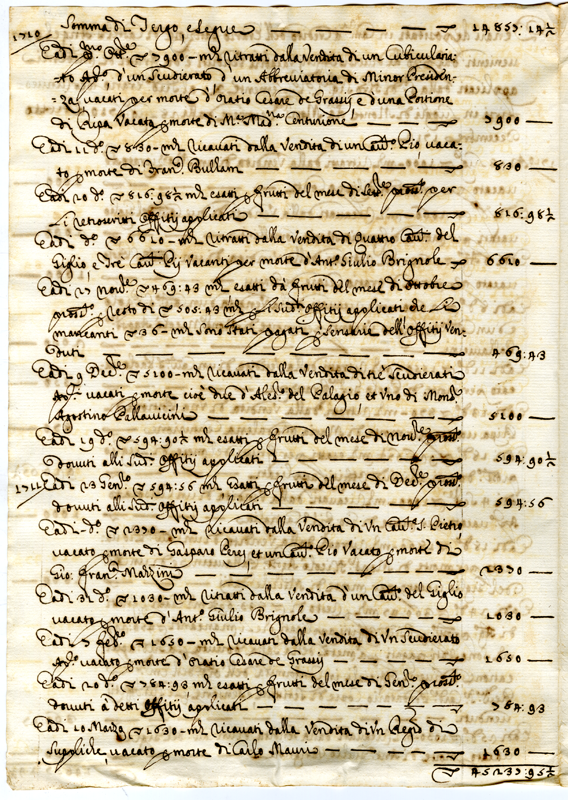 Somma di Tergo, e segue — — — 14853:14½
1710
E adi d.º ▽ 7900 - m.ta ritratti dalla Vendita di un Cubicularia-
to Ap.º, d'un Scudierato d'un Abbreviatoria di Minor Presiden-
za, vacati per morte d'Oratio Cesare de Grassij e d'una Portione
di Ripa Vacata p morte di Centurione — — 7900 —
E adi 11 d.º ▽ 830 - m.ta Ricavati dalla Vendita di un Cau.to Pio vaca-
to p morte di Fran.º — — — 830 —
E adi 20 d.º ▽ 816:98½ m.ta esatti p frutti del mese di pross.º per
Li retroscritti Offitij applicati — — — 816:98½
E adi d.º ▽ 6610 - m.ta ritratti dalla Vendita di quattro Cau.ti del
Giglio, e Tre Cau.ti Pij Vacanti per morte d'Ant.º Giulio Brignole — 6610 —
E adi 17 Nov.re ▽ 469:43 m.ta esatti da frutti del mese di ottobre
pross.º p resto di ▽ 505:43 m.ta p li Sud.i Offitij applicati che Li
mancanti ▽ 36 - m.ta sono stati pagati p Sensarie dell'Offitij Ven-
duti — — — 469:43
E adi 9 Dec.re ▽ 5100 - m.ta ricavati dalla Vendita di tre Scudierati
Ap.ci vacati p morte cioè due d'Ales.º del Palagio, et uno di Mons.r
Agostino Pellavicini — — — 5100 —
E adi 19 d.º ▽ 594:90½ m.ta esatti p frutti del mese di Nov.re pross.º
dovuti alli Sud.i Offitij applicati — — — 594:90½
1711 E adi 23 Gen.º ▽ 594:56 m.ta esatti p frutti del mese di Dec.re pross.º
dovuti alli Sud.i Offitij applicati — — — 594:56
E adi d.º ▽ 2330 - m.ta Ricavati dalla Vendita di Un Cau.to S. Pietro
vacato p morte di Gasparo Perez et un Cau.to Pio Vacato p morte di
Gio: Fran.º Mazzini — — — 2330 —
E adi 31 d.º ▽ 1030 - m.ta ritratti dalla Vendita d'un Cau.to del Giglio
vacato p morte d'Ant.º Giulio Brignole — — — 1030 —
E adi 7 Feb.º ▽ 1650 - m.ta ricavati dalla Vendita di Un Scudierato
Ap.º vacato p morte d'Oratio Cesare de Grassij — — — 1650 —
E adi 20 d.º ▽ 784:93 m.ta esatti p frutti del mese di Gen.º pross.º
dovuti à detti Offitij applicati — — — 784:93
E adi 10 Marzo ▽ 1630 - m.ta ricavati dalla Vendita di Un Reg.º di
Suppliche, vacato p morte di Carlo Mauri — — — 1630 —
▽ 45233:95½